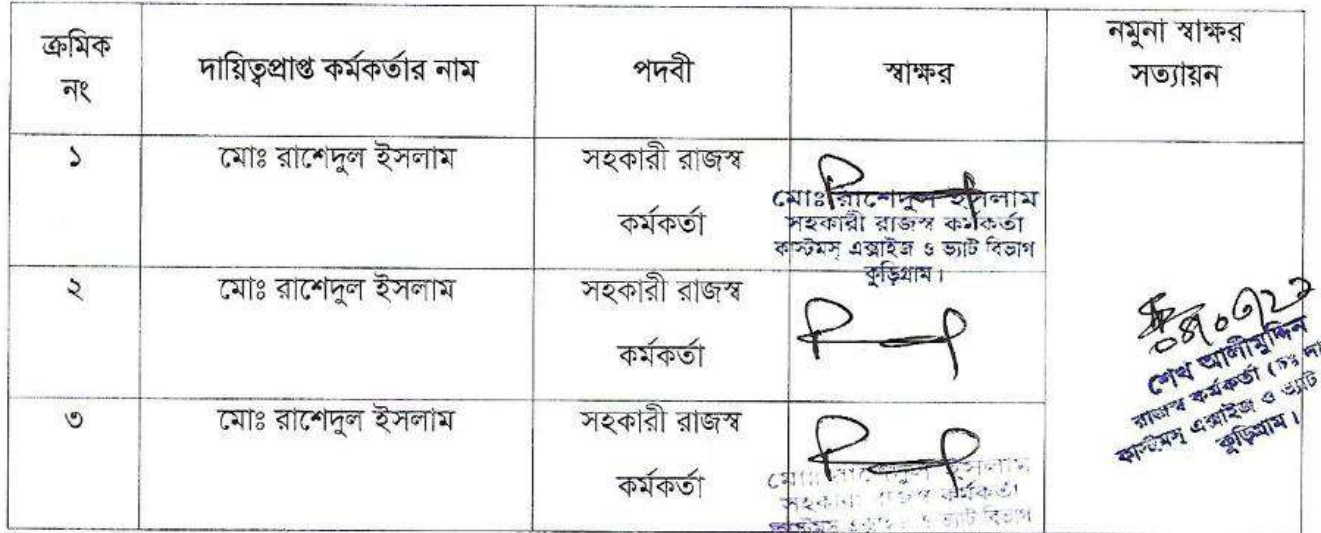 ক্রমিক নং
দায়িত্বপ্রাপ্ত কর্মকর্তার নাম
পদবী
স্বাক্ষর
নমুনা স্বাক্ষর সত্যায়ন
১
মোঃ রাশেদুল ইসলাম
সহকারী রাজস্ব
কর্মকর্তা
মোঃ রাশেদুল ইসলাম
সহকারী রাজস্ব কর্মকর্তা
কাস্টমস্ এক্সাইজ ও ভ্যাট বিভাগ
কুড়িগ্রাম।
২
মোঃ রাশেদুল ইসলাম
সহকারী রাজস্ব
কর্মকর্তা
শেখ আলীমুদ্দিন
রাজস্ব কর্মকর্তা (চঃ দাঃ
কাস্টমস্ এক্সাইজ ও ভ্যাট
কুড়িগ্রাম।
৩
মোঃ রাশেদুল ইসলাম
সহকারী রাজস্ব
কর্মকর্তা
মোঃ রাশেদুল ইসলাম
সহকারী রাজস্ব কর্মকর্তা
কাস্টমস্ এক্সাইজ ও ভ্যাট বিভাগ